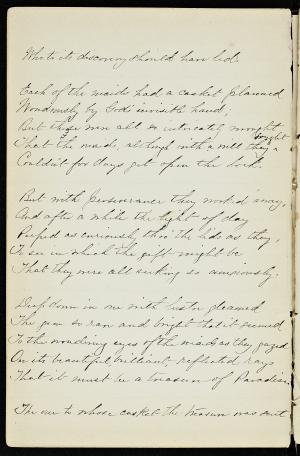 Whither its discovery should have led.
Each of the maids had a casket planned
Wondrously by God's invisible hand;
But these were all so intricately wrought
That the maids, although with a will they
sought
Couldn't for days get open the lid.
But with perseverance they worked away,
And after a while the light of day
Peeped as curiously thro' the lids as they,
To see in which the gift might be,
That they were all seeking so anxiously.
Deep down in one with luster gleamed
The gem so rare and bright that it seemed
To the wondering eyes of the maids as they gazed
On its beautiful, brilliant, reflected rays
That it must be a treasure of Paradise.
The one to whose casket the treasure was sent